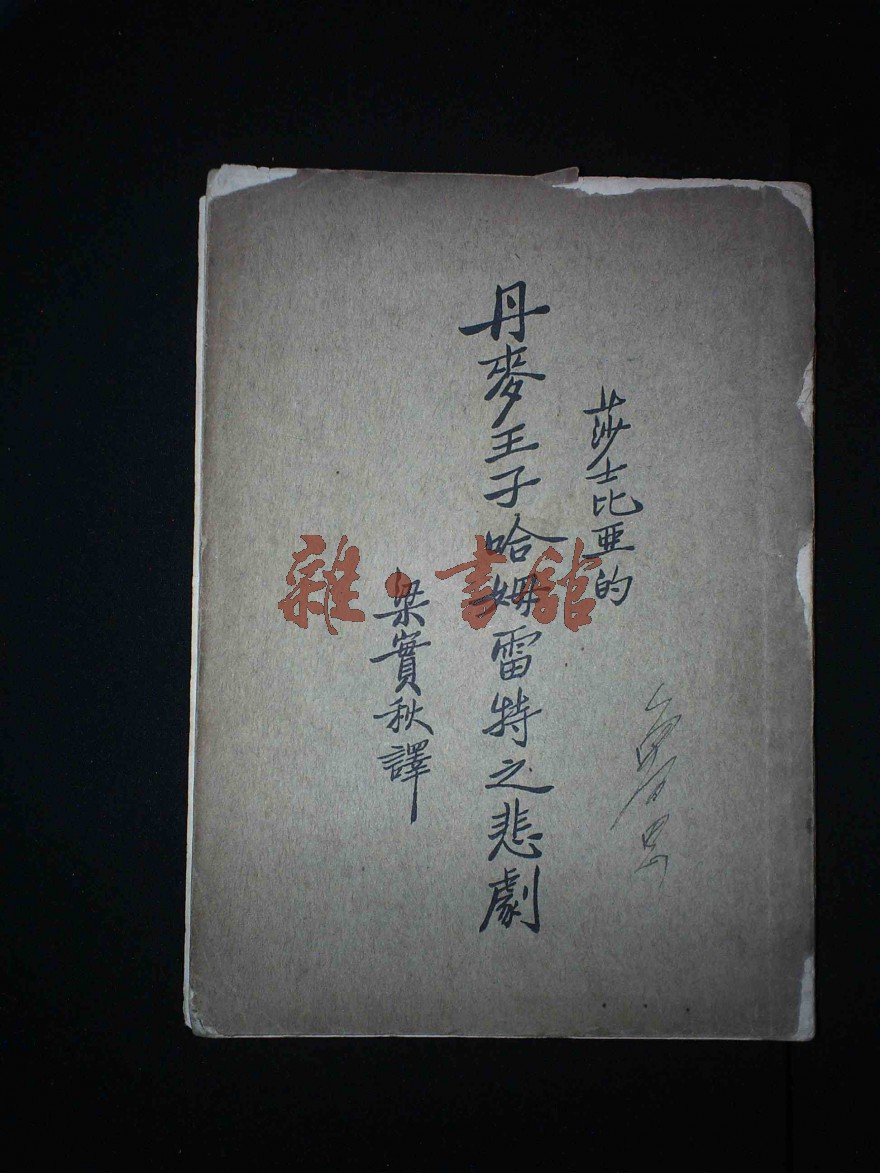 莎士比亞的
丹麥王子哈姆雷特之悲劇
梁實秋譯
雜·書館